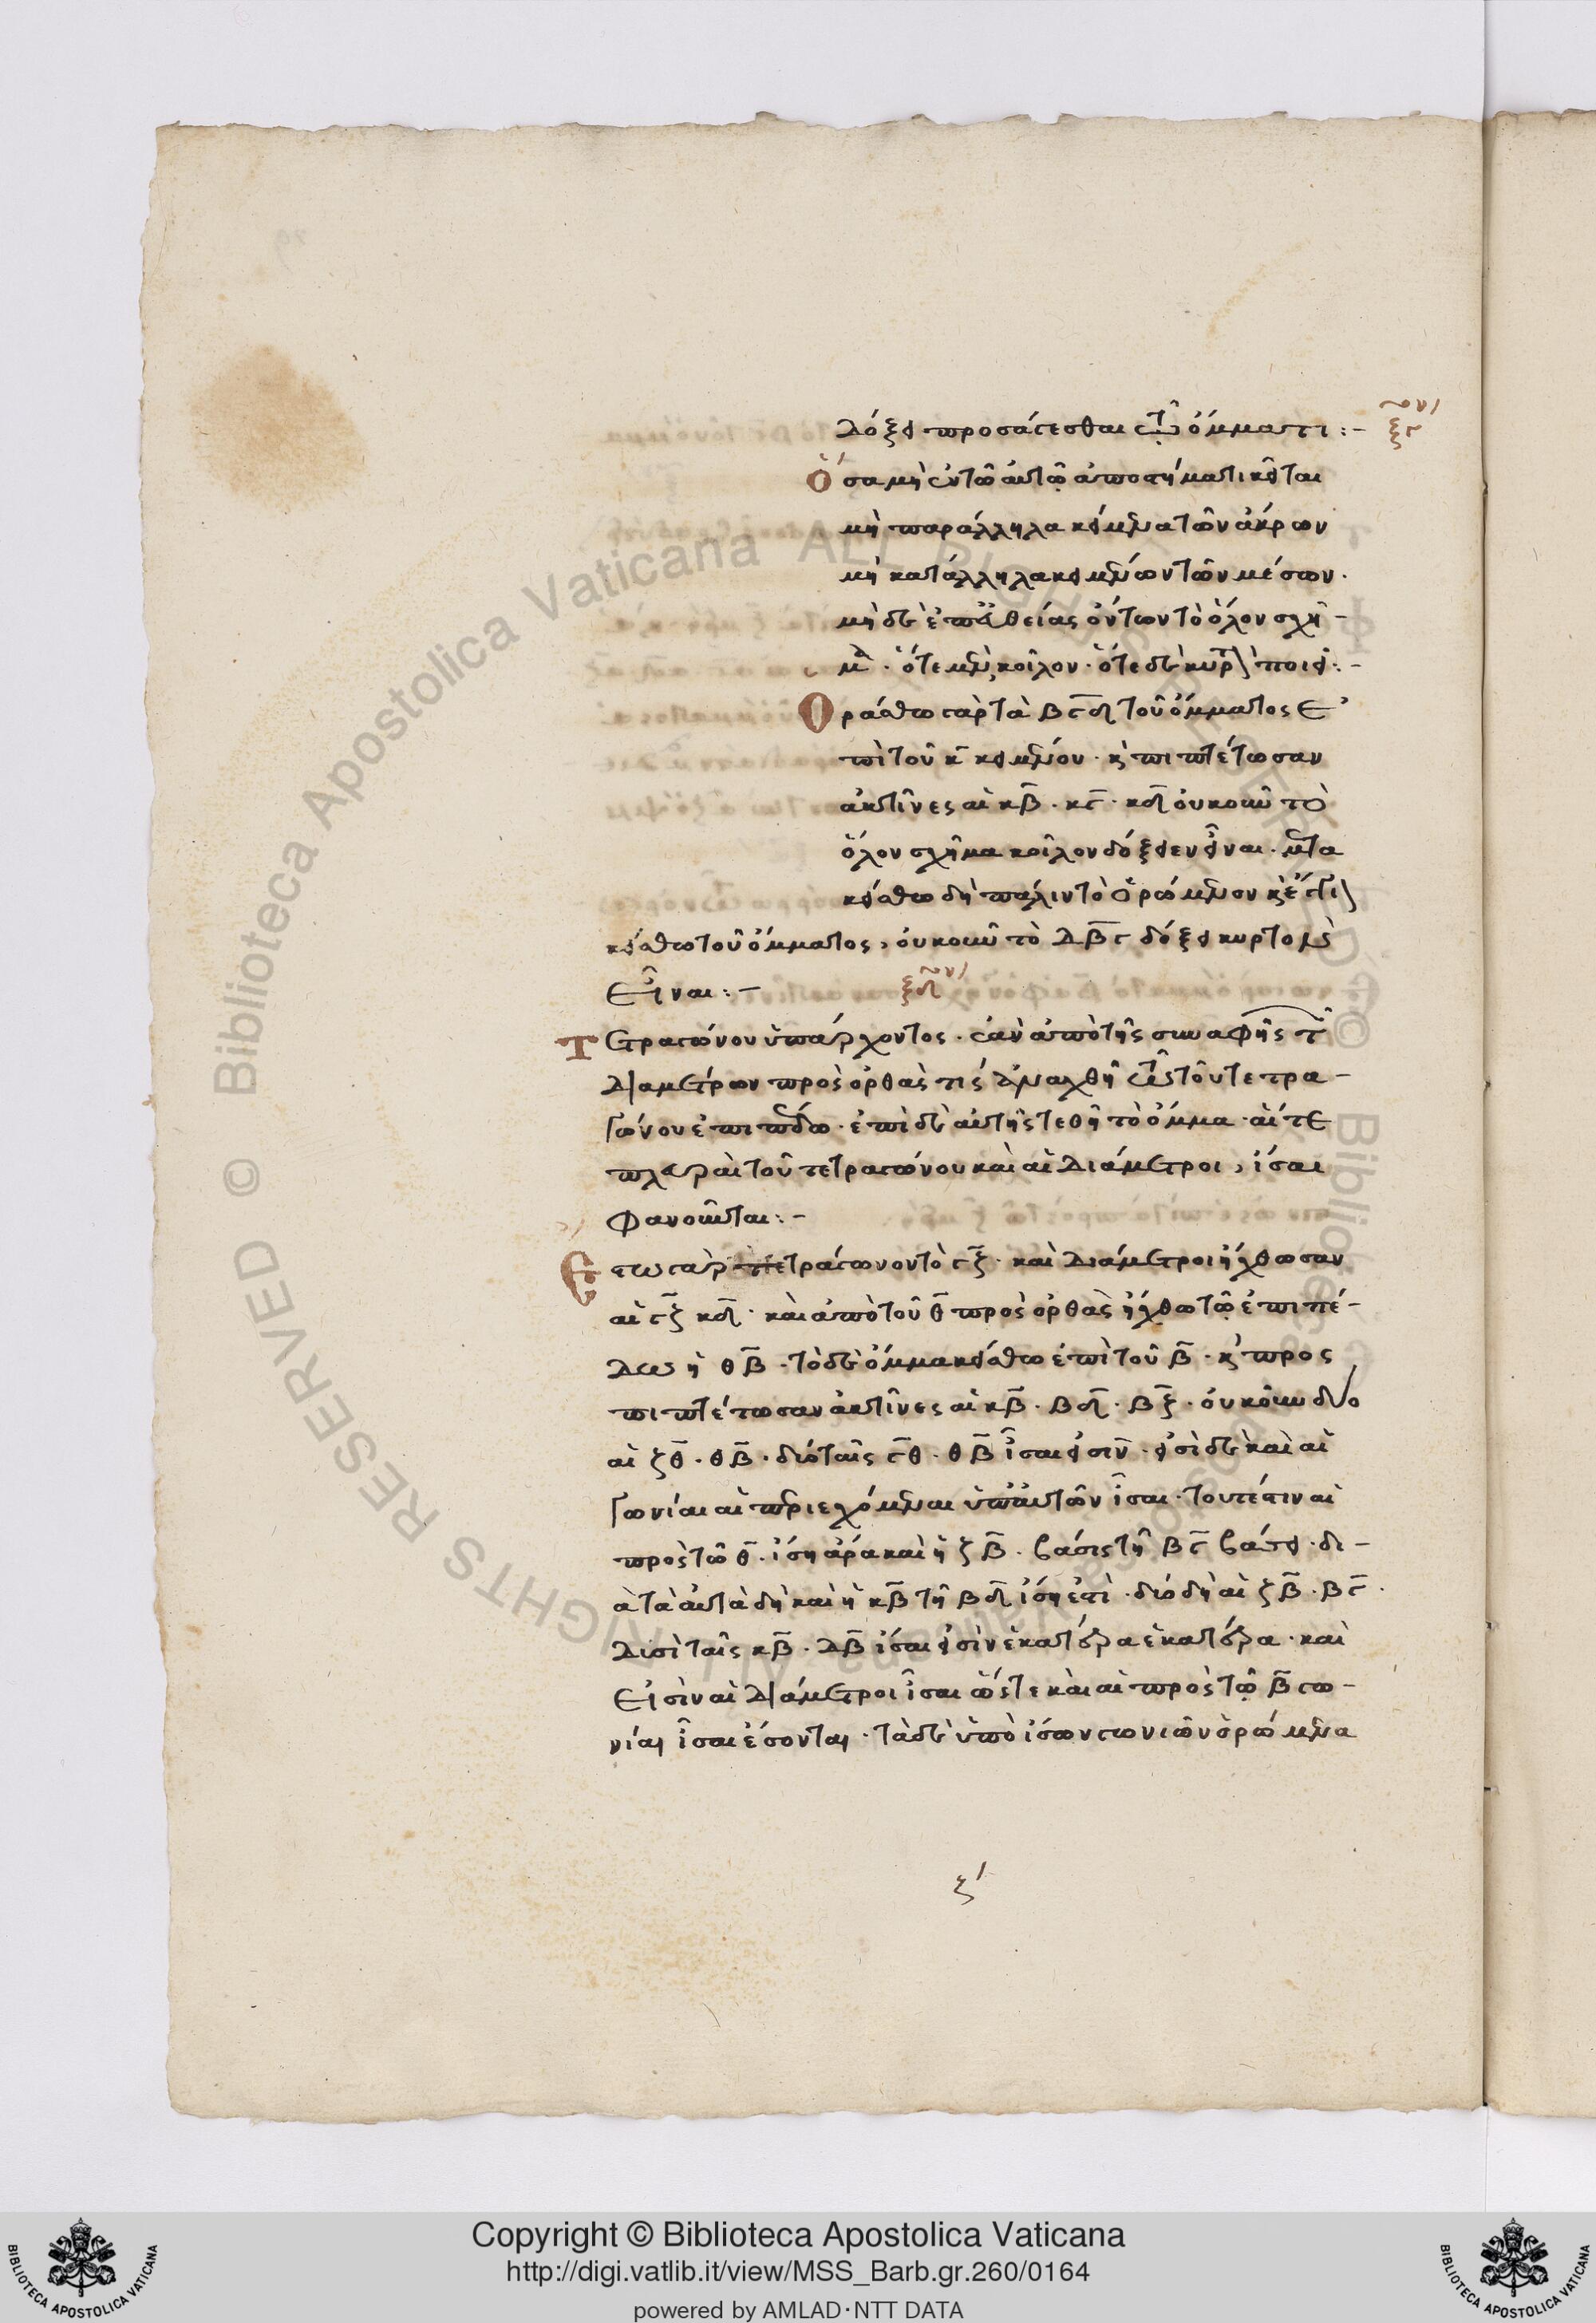 δόξει προσάγεσθαι τῷ ὄμματι :-
ξγον
Ὅσα μὴ ἐν τῷ αὐτῷ ἀποστήματι κεῖται
μὴ παράλληλα κείμενα τῶν ἄκρων
μὴ κατάλληλα κειμένων τῶν μέσων.
μὴ δὲ ἐπ' εὐθείας ὄντων τὸ ὅλον σχῆ-
μα. ὁτὲ μὲν κοῖλον. ὁτὲ δὲ κυρτὸν ποιεῖ:-
Ὁράσθω γὰρ τὰ βγδ τοῦ ὄμματος ἐ
πὶ τοῦ κ κειμένου. καὶ πιπτέτωσαν
ἀκτῖνες αἱ κβ. κγ. κδ οὐκοῦν τὸ
ὅλον σχῆμα κοῖλον δόξειεν εἶναι. μετα
κείσθω δὴ πάλιν τὸ ὁρώμενον καὶ ἔτι
κείσθω τοῦ ὄμματος, οὐκοῦν τὸ δβγ δόξει κυρτὸν
εἶναι:-
ξδον
Τετραγώνου ὑπάρχοντος. ἐὰν ἀπὸ τῆς συναφῆς τῶν
διαμέτρων πρὸς ὀρθάς τις ἀναχθῇ τῷ τοῦ τετρα-
γώνου ἐπιπέδῳ. ἐπὶ δὲ αὐτῆς τεθῇ τὸ ὄμμα. αἵ τε
πλευραὶ τοῦ τετραγώνου καὶ αἱ διάμετροι, ἴσαι
φανοῦνται:-
Ἔστω γὰρ τετράγωνον τὸ γξ. καὶ διάμετροι ἤχθωσαν
αἱ γζ κδ. καὶ ἀπὸ τοῦ θ πρὸς ὀρθὰς ἤχθω τῷ ἐπιπέ-
δω ἡ θβ. τὸ δὲ ὄμμα κείσθω ἐπὶ τοῦ β. καὶ προς
πιπτέτωσαν ἀκτῖνες αἱ κβ. βδ. βξ. οὐκοῦν δύο
αἱ ζθ. θβ. δυὸ ταῖς γθ. θβ ἴσαι εἰσίν. εἰσὶ δὲ καὶ αἱ
γωνίαι αἱ περιεχόμεναι ὑπ' αὐτῶν ἴσαι. τουτέστιν αἱ
πρὸς τῷ θ. ἴση ἄρα καὶ ἡ ζβ. βάσις τῇ βγ βάσει. δι-
ὰ τὰ αὐτὰ δὴ καὶ ἡ κβ τῇ βδ ἴση ἐστί. δύο δὴ αἱ ζβ. βγ.
δυσὶ ταῖς κβ. δβ ἴσαι εἰσὶν ἑκατέρα ἑκατέρα. καὶ
εἰσὶν αἱ διάμετροι ἴσαι ὥστε καὶ αἱ πρὸς τῷ β γω-
νίαι ἴσαι ἔσονται. τὰ δὲ ὑπὸ ἴσων γωνιῶν ὁρώμενα
ξ'
Biblioteca Apostolica Vaticana ALL RIGHTS RESERVED ©
Copyright © Biblioteca Apostolica Vaticana
http://digi.vatlib.it/view/MSS_Barb.gr.260/0164
powered by AMLAD·NTT DATA
BIBLIOTECA APOSTOLICA VATICANA
BIBLIOTECA APOSTOLICA VATICANA